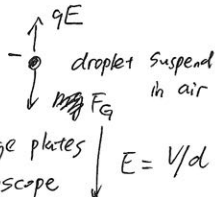 qE
droplet suspend
in air
F_G
ge plates
E = V/d
scope